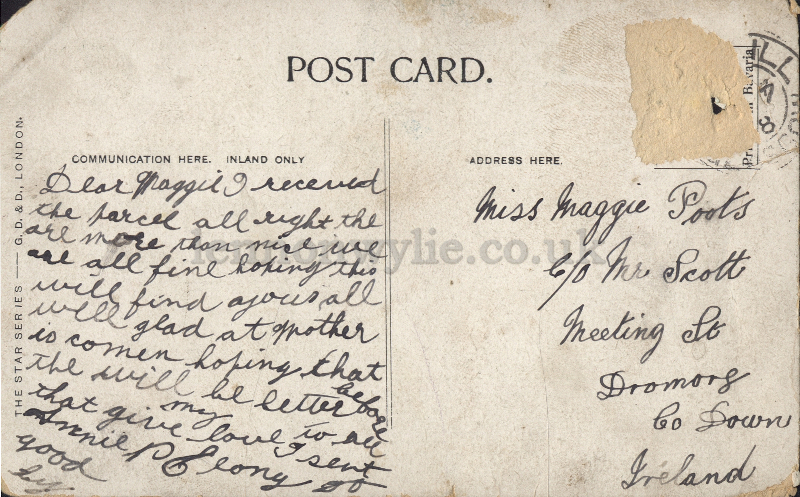 POST CARD.
THE STAR SERIES — G. D. & D., LONDON.
COMMUNICATION HERE. INLAND ONLY
Dear Maggie I received
the parcel all right the
are more than nice we
are all fine hoping this
will find ayous all
well glad at Mother
is comen hoping that
the will be letter before
that give my love to all
Annie I sent
good long so
by
ADDRESS HERE.
Miss Maggie Poots
C/o Mr Scott
Meeting St
Dromore
Co Down
Ireland
Bavaria
lennonwylie.co.uk